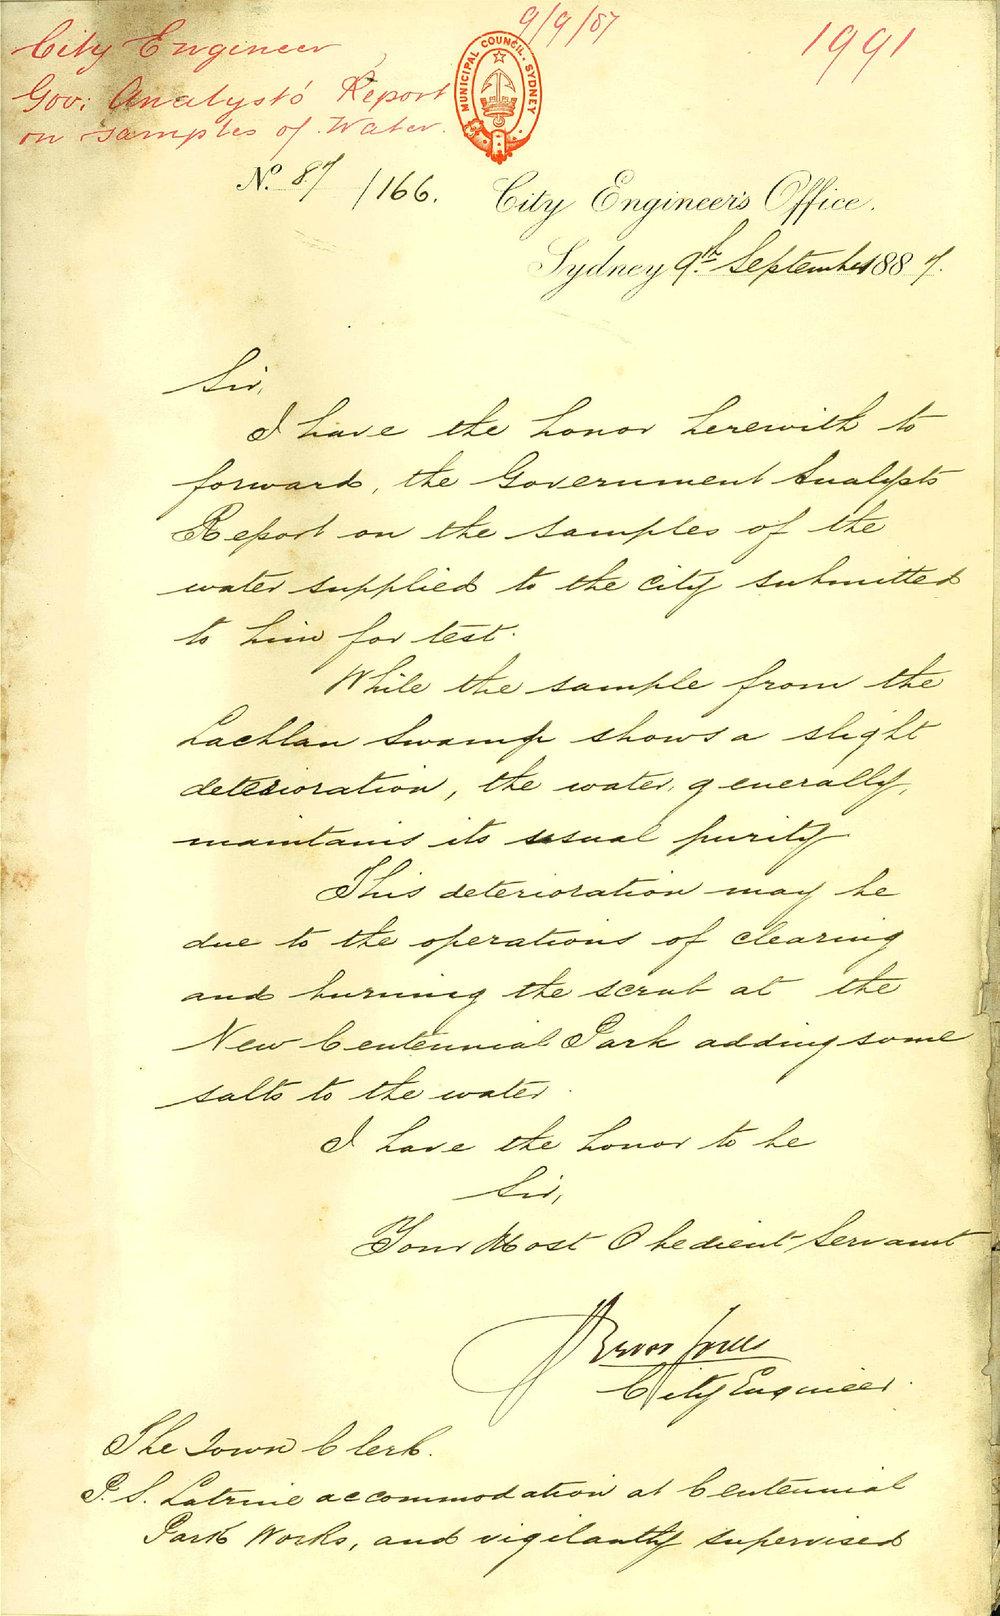 City Engineer
Gov: Analysts Report
on samples of Water.
9/9/87
1991
MUNICIPAL COUNCIL. SYDNEY
No. 87/166.
City Engineer's Office.
Sydney 9th. September 1887.
Sir,
I have the honor herewith to
forward, the Government Analysts
Report on the samples of the
water supplied to the city submitted
to him for test.
While the sample from the
Lachlan Swamp shows a slight
deterioration, the water, generally,
maintains its usual purity
This deterioration may be
due to the operations of clearing
and burning the scrub at the
New Centennial Park adding some
salts to the water.
I have the honor to be
Sir,
Your Most Obedient Servant
Trevor Jones
City Engineer.
The Town Clerk.
P.S. Latrine accommodation at Centennial
Park Works, and vigilantly supervised